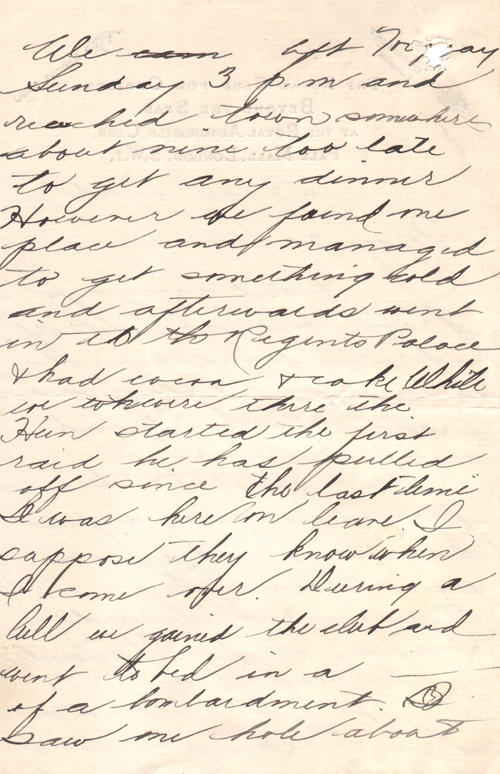 We left Torquay
Sunday 3 p m and
reached town somewhere
about nine too late
to get any dinner
However we found one
place and managed
to get something cold
and afterwards went
in to the Regents Palace
& had cocoa & cake While
we were there the
Hun started the first
raid he has pulled
off since the last time
I was here on leave. I
suppose they know when
I come over. During a
lull we gained the club and
went to bed in a —
of a bombardment. I
saw one hole about